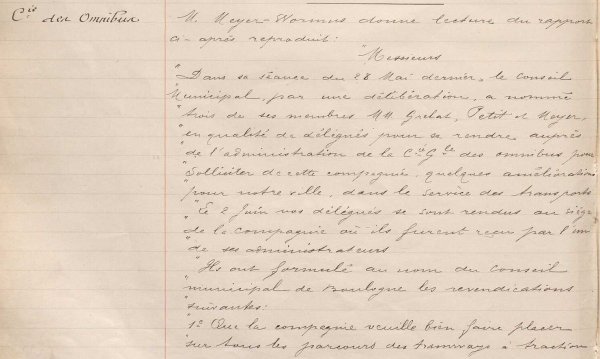 Cie des Omnibus
M. Meyer-Wormus donne lecture du rapport
ci-après reproduit:
"Messieurs
"Dans sa séance du 28 Mai dernier, le Conseil
"Municipal, par une délibération, a nommé
"trois de ses membres MM Grelat, Petit et Meyer,
"en qualité de délégués pour se rendre auprès
"de l'administration de la Cie Gle des omnibus pour
"solliciter de cette compagnie, quelques améliorations
"pour notre ville, dans le service des transports
"Le 2 Juin vos délégués se sont rendus au siège
"de la Compagnie où ils furent reçus par l'un
"de ses administrateurs
"Ils ont formulé au nom du Conseil
"municipal de Boulogne les revendications
"suivantes:
"1º Que la compagnie veuille bien faire placer
"sur tous les parcours des tramways à traction